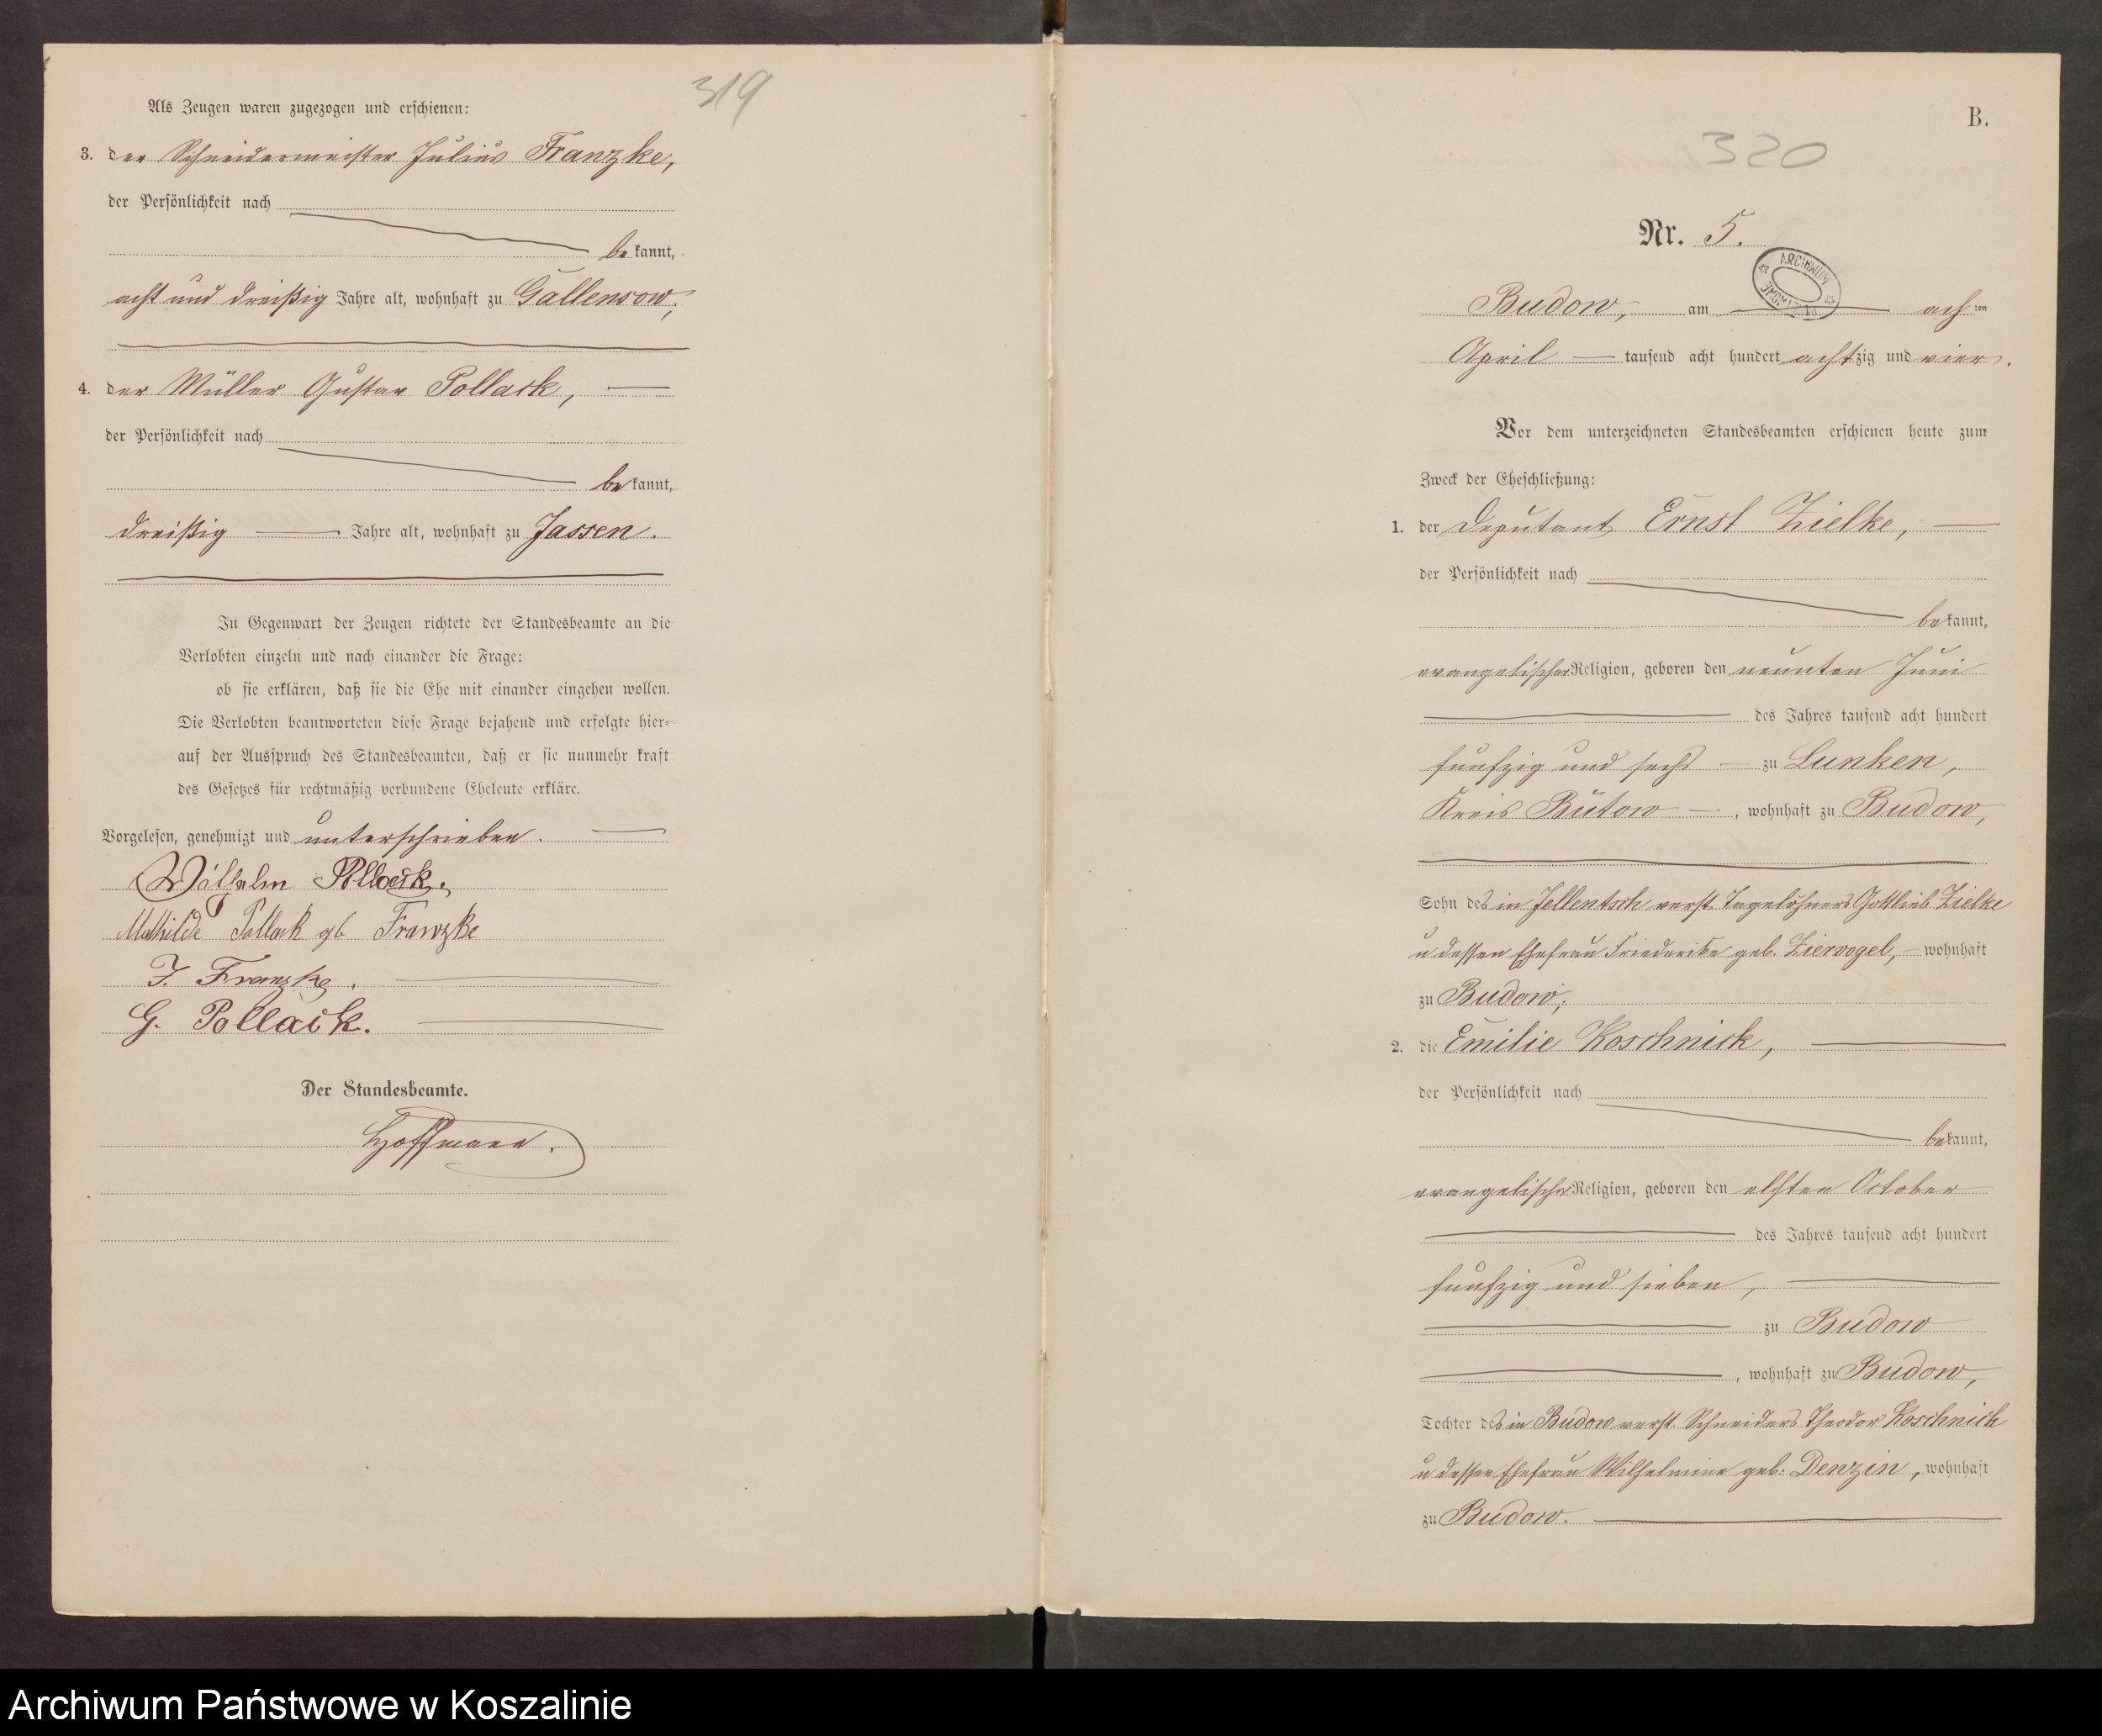 319
Als Zeugen waren zugezogen und erschienen:
3. der Schneidermeister Julius Franzke,
der Persönlichkeit nach
bekannt,
acht und dreißig Jahre alt, wohnhaft zu Gallensow;
4. der Müller Gustav Pollack,
der Persönlichkeit nach
bekannt,
dreißig Jahre alt, wohnhaft zu Jassen.
In Gegenwart der Zeugen richtete der Standesbeamte an die
Verlobten einzeln und nach einander die Frage:
ob sie erklären, daß sie die Ehe mit einander eingehen wollen.
Die Verlobten beantworteten diese Frage bejahend und erfolgte hier-
auf der Ausspruch des Standesbeamten, daß er sie nunmehr kraft
des Gesetzes für rechtmäßig verbundene Eheleute erkläre.
Vorgelesen, genehmigt und unterschrieben.
Wilhelm Pollack.
Mathilde Pollack gb Franzke
J. Franzke.
G. Pollack.
Der Standesbeamte.
Hoffmann.
B.
320
Nr. 5.
ARCHIWUM
Budow, am achten
April tausend acht hundert achtzig und vier.
Vor dem unterzeichneten Standesbeamten erschienen heute zum
Zweck der Eheschließung:
1. der Deputant Ernst Zielke,
der Persönlichkeit nach
bekannt,
evangelischer Religion, geboren den neunten Juni
des Jahres tausend acht hundert
funfzig und sechs zu Lunken,
Kreis Bütow, wohnhaft zu Budow,
Sohn des in Jellentsch verst. Tagelöhners Gottlieb Zielke
u dessen Ehefrau Friederike geb. Ziervogel, wohnhaft
zu Budow;
2. die Emilie Koschnick,
der Persönlichkeit nach
bekannt,
evangelischer Religion, geboren den elften October
des Jahres tausend acht hundert
funfzig und sieben,
zu Budow
, wohnhaft zu Budow,
Tochter des in Budow verst. Schneiders Theodor Koschnick
u dessen Ehefrau Wilhelmine geb. Denzin, wohnhaft
zu Budow.
Archiwum Państwowe w Koszalinie